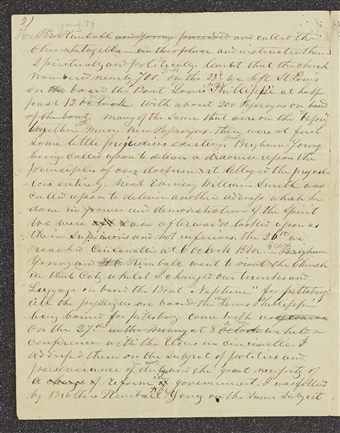 2)
young &
H C Kimball and young preceeded and called the
Church together in this place and instructed them
Spiritually and politically. I learnt that the church
Numbered nearly 700. on the 23d we left St Louis
on board the Boat Louis Phillippi at half
past 12 Oclock with about 200 Passengers on board
of the boat many of the same that were on the
together Many New Passengers. there were at first
some little prejudices existing. Brigham Young
being called upon to deliver a discourse upon the
principles of our doctrine it allayed the prejud-
ices entirely. Next Evening William Smith was
called upon to deliver another address which he
done in power and demonstration of the Spirit
we were ever afterwards looked upon as
their Superiors and not inferiors. the 26th we
reached Cincinnatti at 6 Oclock P.M. Brigham
Young and H C Kimball went to visit the church
in that City whilst I changed our trunks and
Luggage on board the Boat "Neptune" for pittsburg
all the passengers on board the Louis Phillippi
being bound for pittsburg came with us
On the 27th in the Morning at 8 Oclock we held a
conference with the Elders in Cincinatti I
addressed them on the subject of politics and
perseverance of duty and the great necessity of
a change & reform in government. I was followed
by Brothers Kimball & Young on the Same Subject